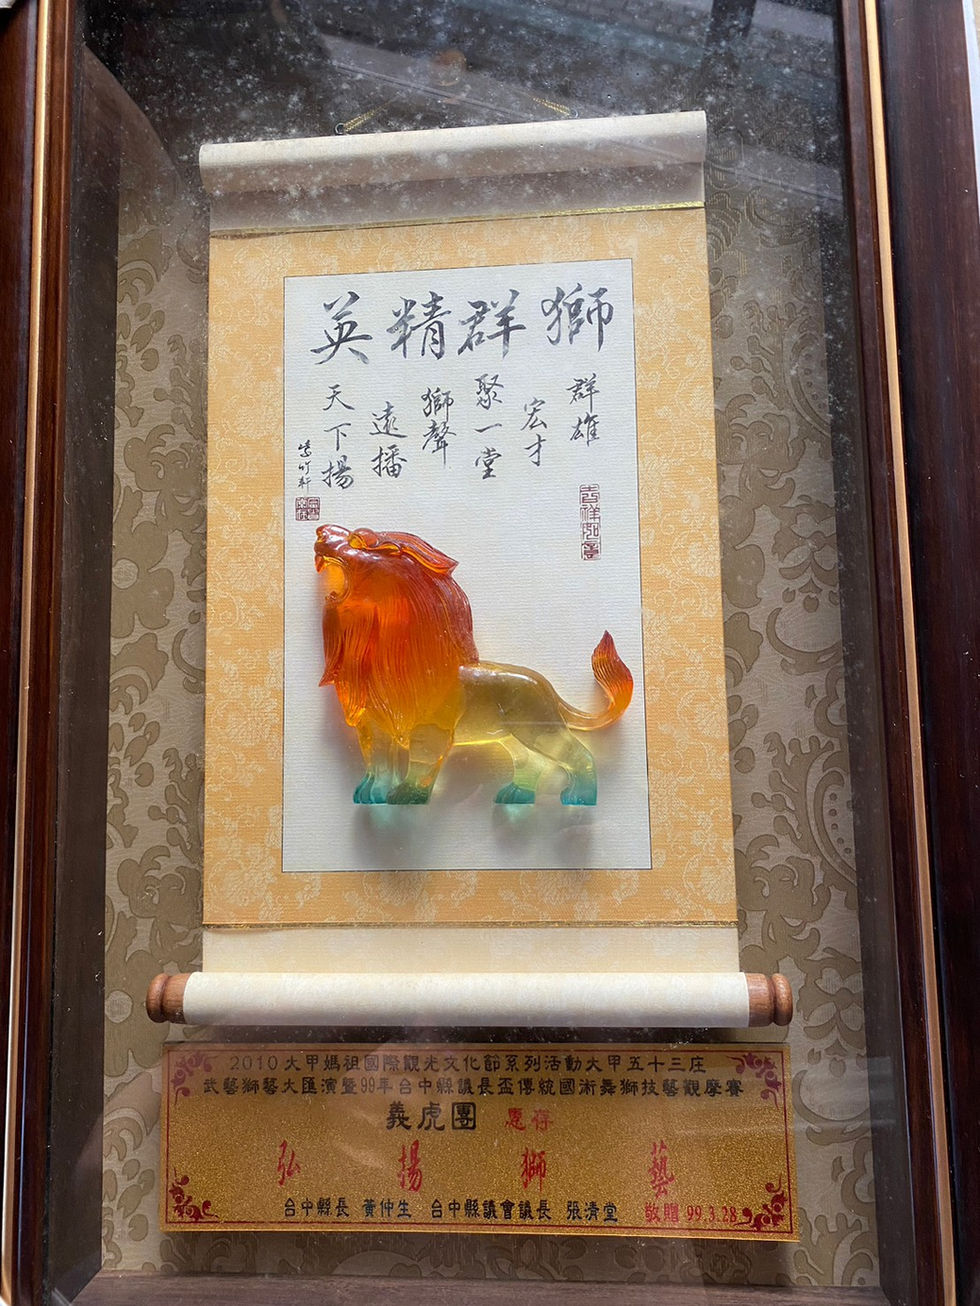 獅群精英
群雄
宏才
聚一堂
獅聲
遠播
天下揚
吉祥如意
2010大甲媽祖國際觀光文化節系列活動大甲五十三庄
武藝獅藝大匯演暨99年台中縣議長盃傳統國術舞獅技藝觀摩賽
義虎團 惠存
弘揚獅藝
台中縣長 黃仲生 台中縣議會議長 張清堂 敬贈 99.3.28